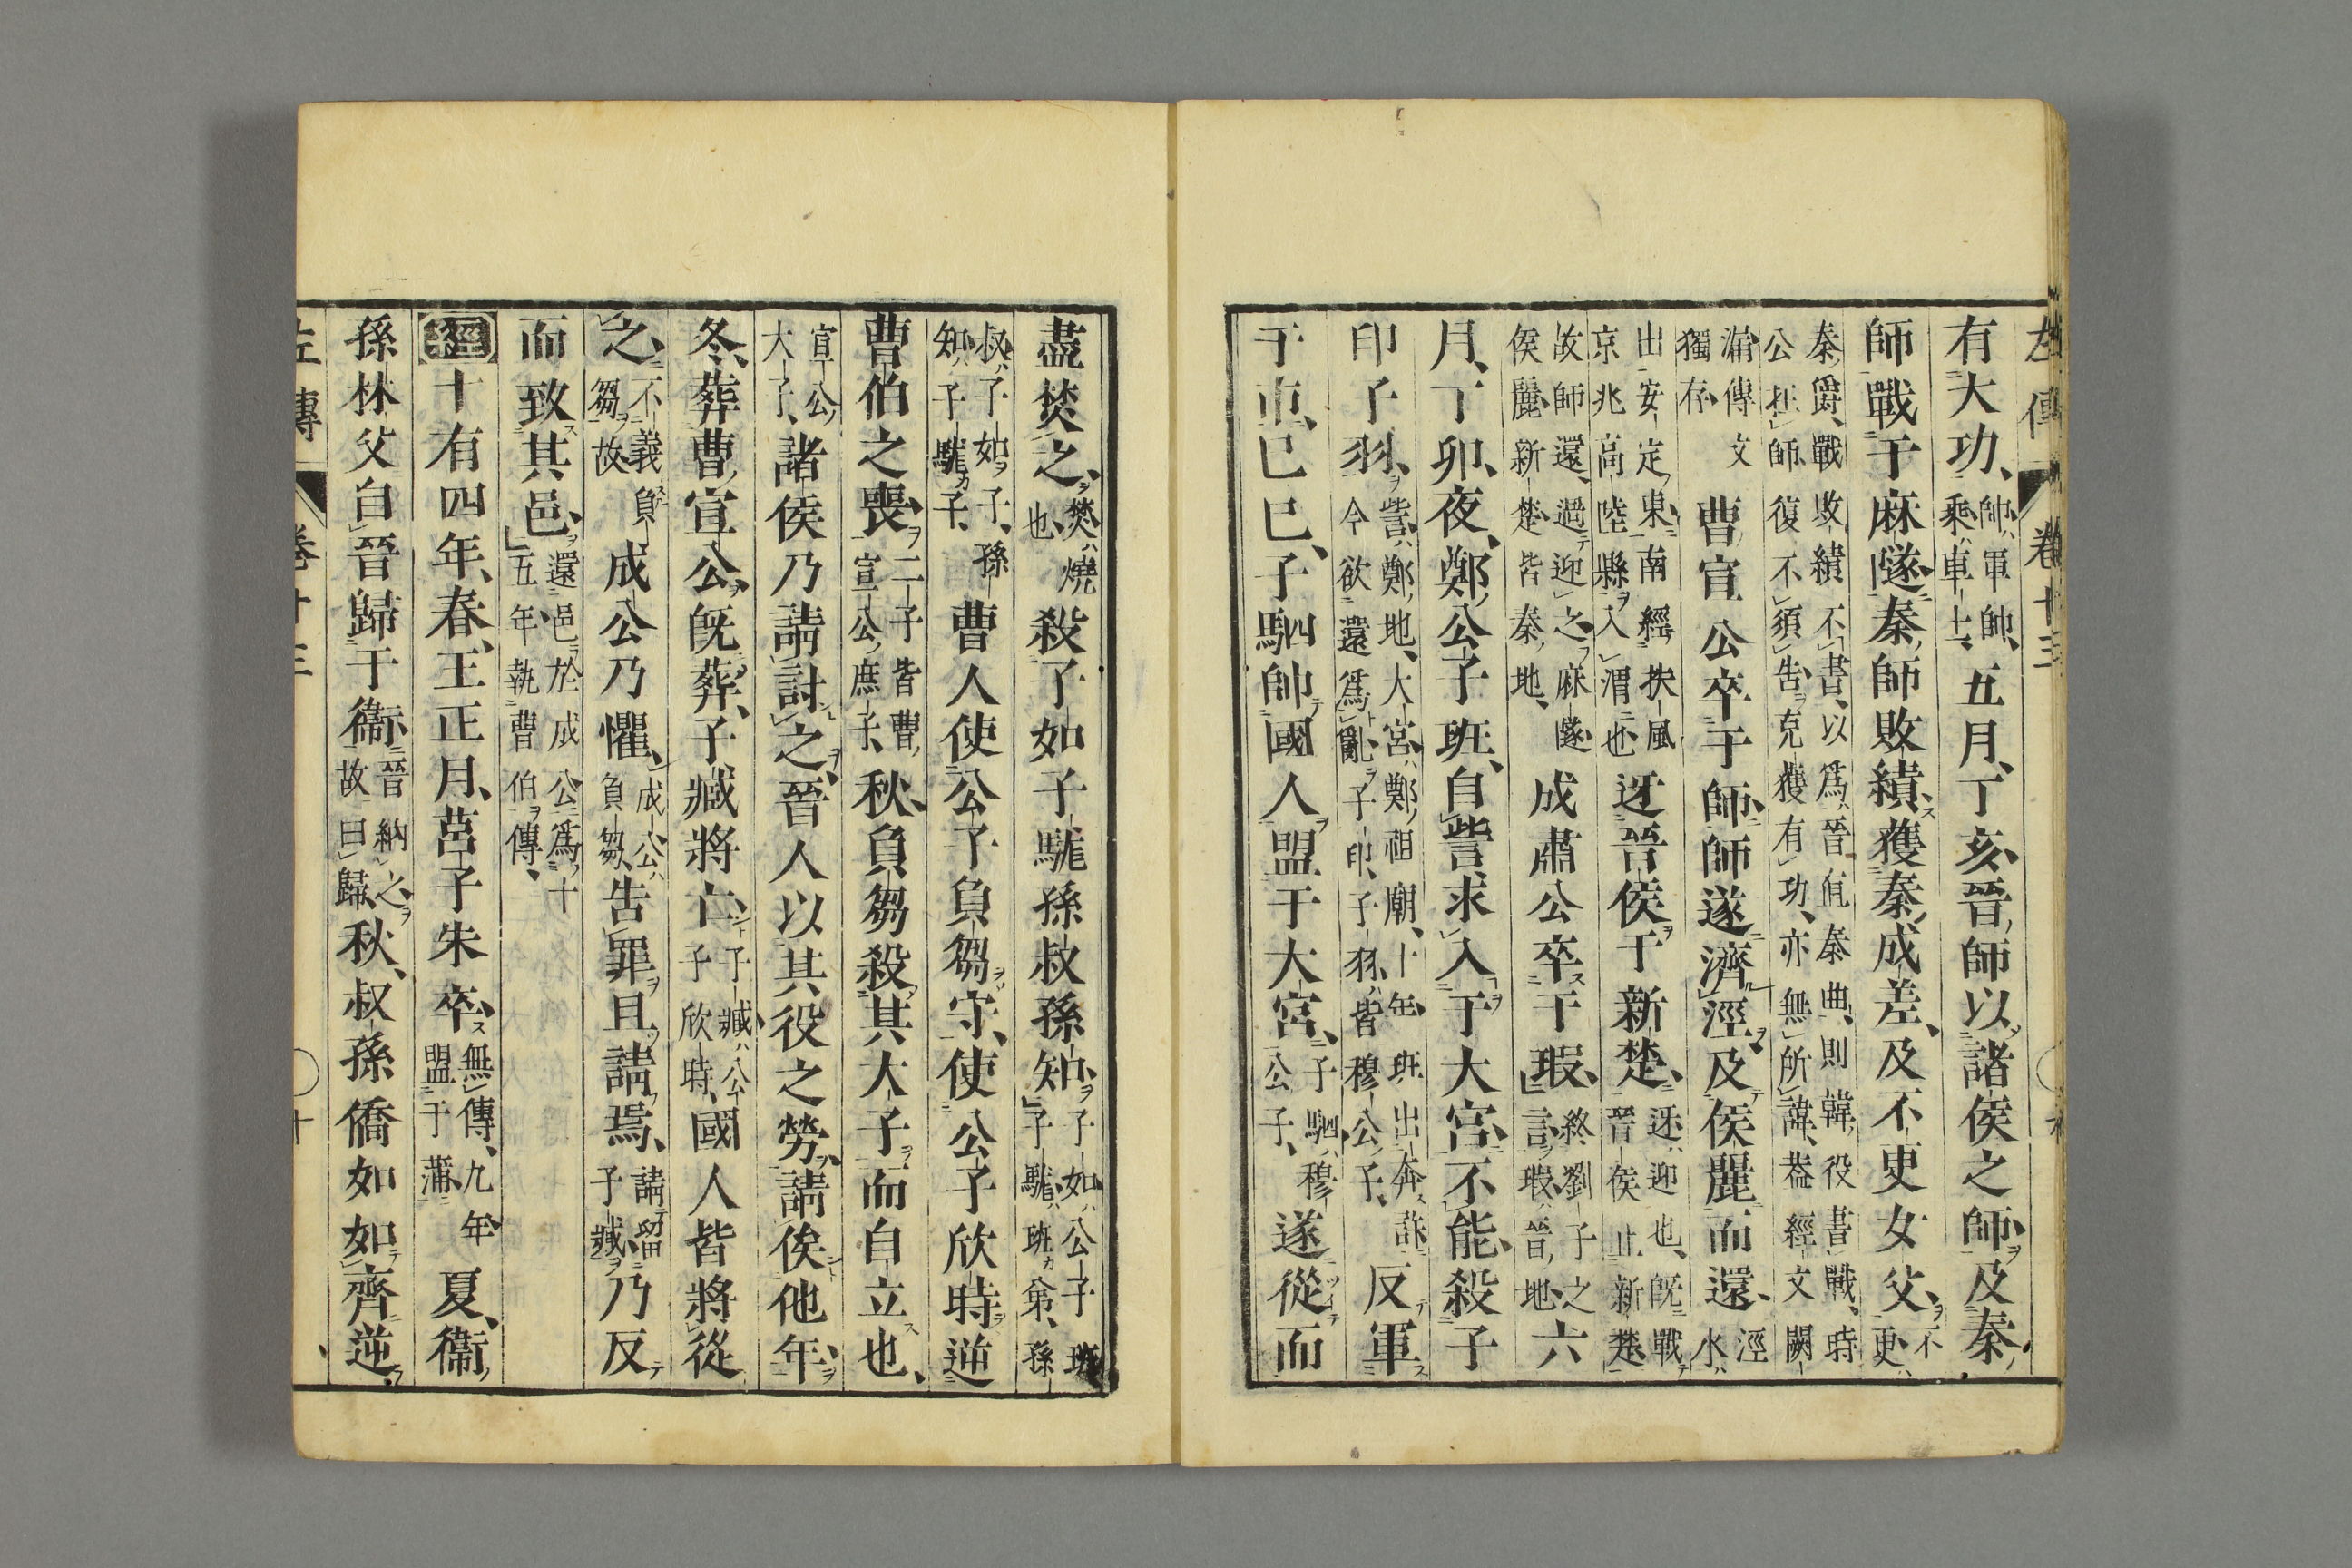 左傳 卷十三
有大功、帥、軍帥、乘、車士、五月、丁亥、晉師以諸侯之師、及秦
師戰于麻隧、秦師敗績、獲秦成差、及不更女父、不更、
秦爵、戰敗績不書、以爲晉直秦曲、則韓役書戰、時公在師、復不須告、克獲有功、亦無所諱、蓋經文闕
漏傳文獨存 曹宣公卒于師、師遂濟涇、及侯麗而還、涇水、
出安定東南經扶風京兆高陸縣入渭也 迓晉侯于新楚、迓、迎也、旣戰晉侯止新楚
故師還、過迎之、麻隧侯麗新楚皆秦地、 成肅公卒于瑕、終劉子之言、瑕、晉地、六
月、丁卯、夜、鄭公子班、自訾求入于大宮、不能、殺子
印子羽、訾、鄭地、大宮、鄭祖廟、十年班出奔許今欲還爲亂、子印、子羽、皆穆公子、 反軍
于市、己巳、子駟帥國人盟于大宮、子駟、穆公子、 遂從而
盡焚之、焚、燒也、 殺子如子駹孫叔孫知、子如、公子班、子駹、班弟、孫
叔、子如子、孫知、子駹子、 曹人使公子負芻守、使公子欣時逆
曹伯之喪、二子皆曹宣公庶子、 秋、負芻殺其大子而自立也、
宣公大子、 諸侯乃請討之、晉人以其役之勞、請俟他年、
冬、葬曹宣公、旣葬、子臧將亡、子臧、公子欣時、 國人皆將從
之、不義負芻故 成公乃懼、成公、負芻、 告罪且請焉、請留子臧、 乃反
而致其邑、還邑於成公爲十五年執曹伯傳、
經十有四年、春、王正月、莒子朱卒、無傳、九年盟于蒲 夏、衞
孫林父自晉歸于衞、晉納之故曰歸、 秋、叔孫僑如如齊逆
左傳 卷十三 十